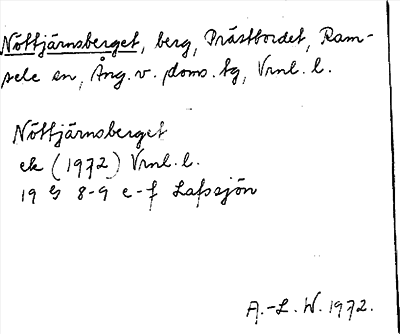 Nöttjärnsberget, berg, Prästbordet, Ram-
sele sn, Ång. v. doms. tg, Vrnl. l.
Nöttjärnsberget
ek (1972) Vrnl. l.
19 G 8-9 e-f Lafssjön
A.-L. W. 1972.